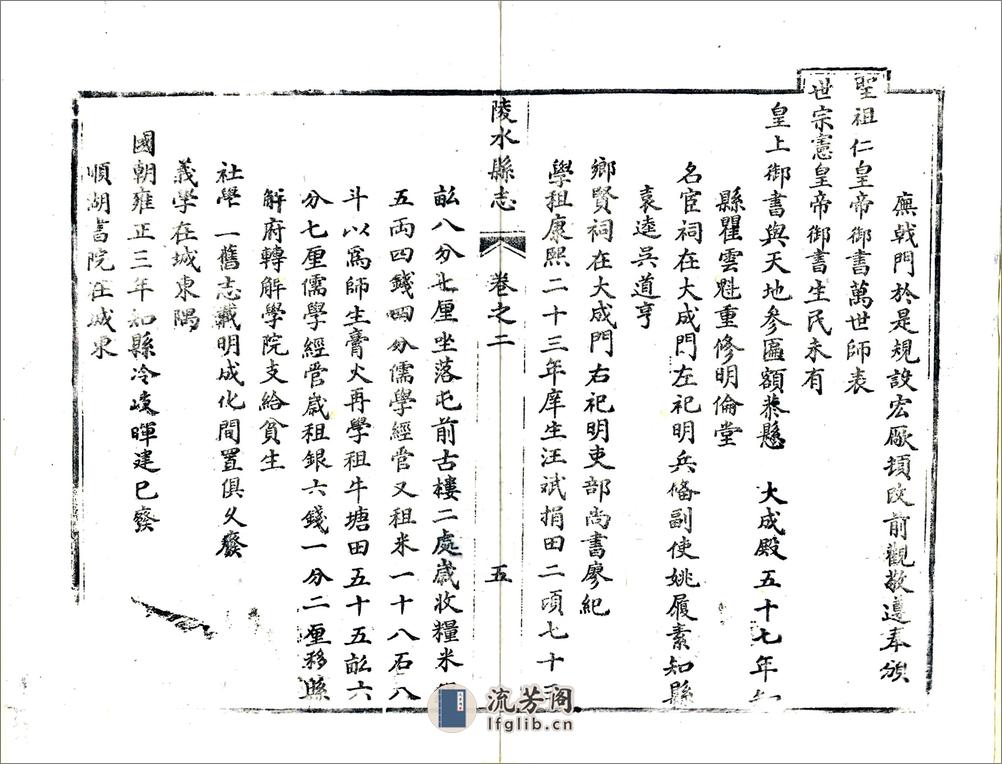 廡戟門於是規設宏厰頓改前觀敬遵奉頒
聖祖仁皇帝御書萬世師表
世宗憲皇帝御書生民未有
皇上御書與天地參匾額恭懸 大成殿五十七年知
縣瞿雲魁重修明倫堂
名宦祠在大成門左祀明兵備副使姚履素知縣
袁逵吳道亨
鄉賢祠在大成門右祀明吏部尚書廖紀
學租康熙二十三年庠生汪斌捐田二頃七十五
陵水縣志 卷之二 五
畆八分七厘坐落屯前古樓二處歲收糧米銀
五両四錢四分儒學經管又租米一十八石八
斗以為師生膏火再學租牛塘田五十五畆六
分七厘儒學經管歲租銀六錢一分二厘移縣
解府轉解學院支給貧生
社學一舊志載明成化間置俱久癈
義學在城東隅
國朝雍正三年知縣冷岐暉建已癈
順湖書院在城東
流芳阁
lfglib.cn